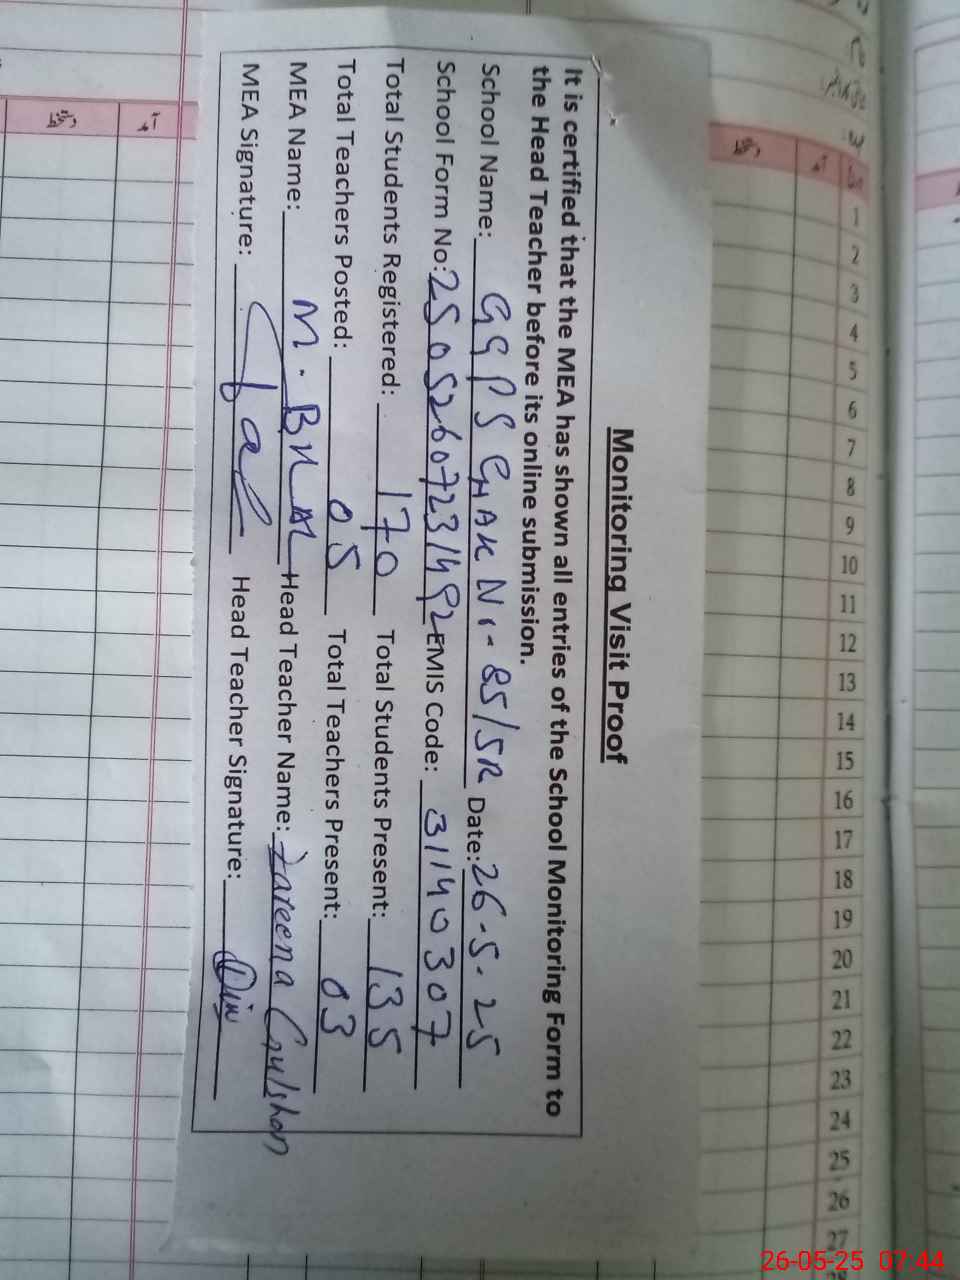 Monitoring Visit Proof
It is certified that the MEA has shown all entries of the School Monitoring Form to
the Head Teacher before its online submission.
School Name: GGPS CHAK Nr- 85/5R Date: 26-5-25
School Form No: 25052607231492 EMIS Code: 31140307
Total Students Registered: 170 Total Students Present: 135
Total Teachers Posted: 05 Total Teachers Present: 03
MEA Name: M. Head Teacher Name: Zareena Gulshan
MEA Signature: Head Teacher Signature:
1 2 3 4 5 6 7 8 9 10 11 12 13 14 15 16 17 18 19 20 21 22 23 24 25 26 27
26-05-25 07:44